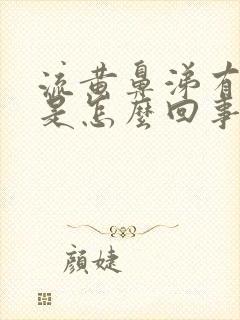 流黄鼻涕有
是怎麼回事
顏婕